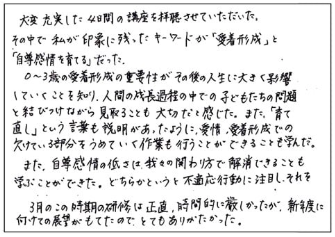 大変充実した4日間の講座を拝聴させていただいた。
その中で私が印象に残ったキーワードが「愛着形成」と
「自尊感情を育てる」だった。
0～3歳の愛着形成の重要性がその後の人生に大きく影響
していくことを知り、人間の成長過程の中での子どもたちの問題
と結びつけながら見取ることも大切だと感じた。また、「育て
直し」という言葉も説明があったように、愛情、愛着形成での
欠けている部分をうめていく作業も行うことができることも学んだ。
また、自尊感情の低さは、我々の関わり方で解消できることも
学ぶことができた。どちらかというと不適応行動に注目し、それを
3月のこの時期の研修は正直、時間的に厳しかったが、新年度に
向けての展望がもてたので、とてもありがたかった。